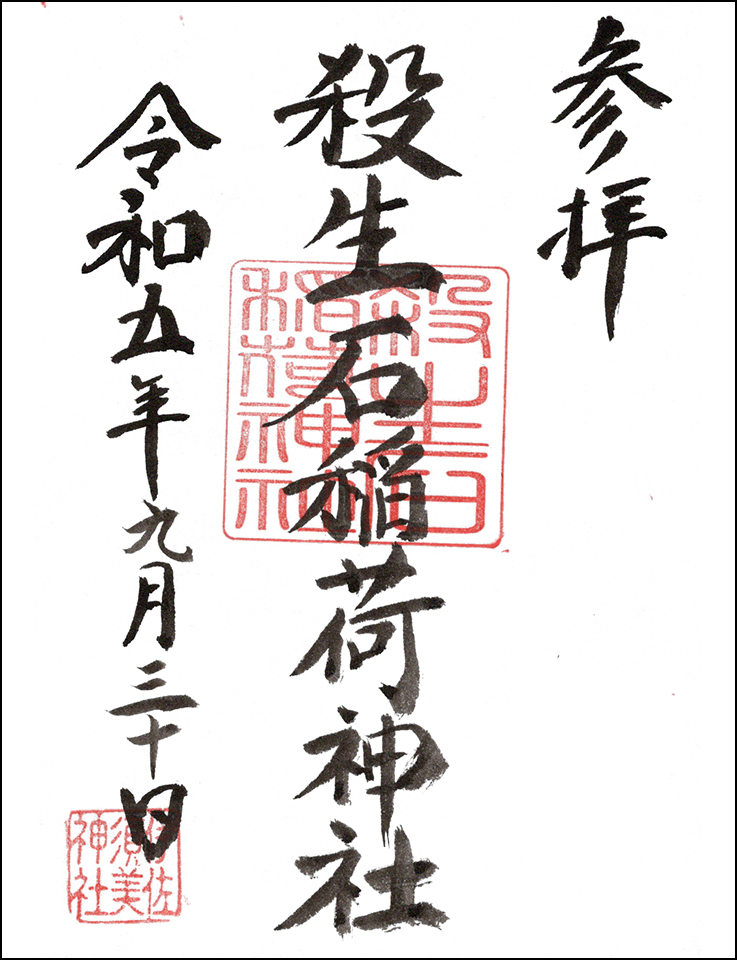 参拝
殺生石稲荷神社
殺生石
稲荷神社
令和五年九月三十日
伊佐
須美
神社